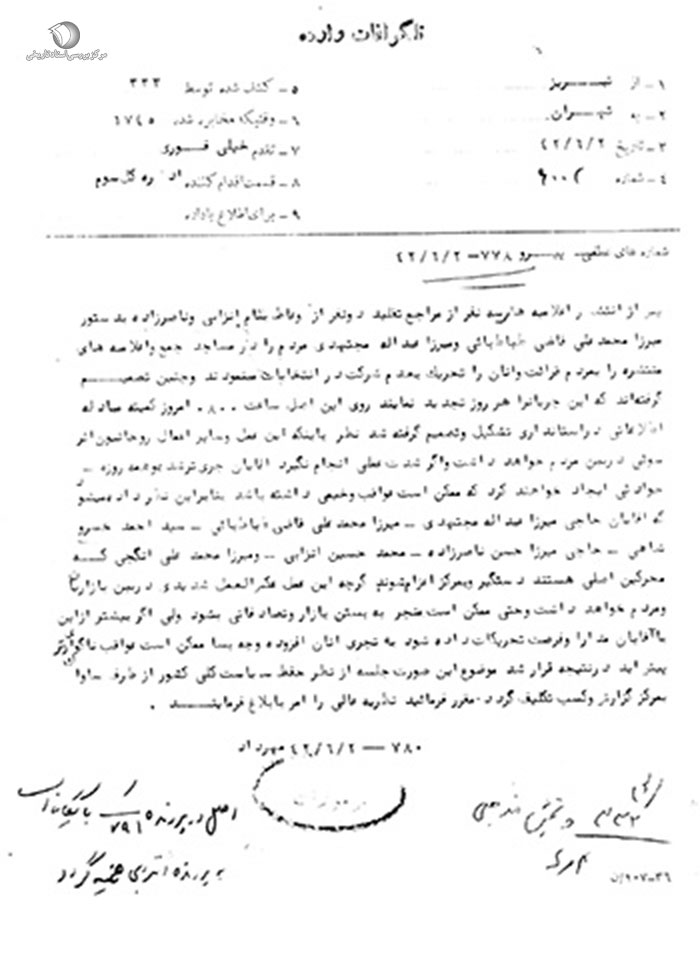 مرکز بررسی اسناد تاریخی
تلگرافات وارده
۱ـ از تبریز
۲ـ به تهران
۳ـ تاریخ ۴۲/۶/۲
۴ـ شماره
۵ـ کشف شده توسط ۳۳۳
۶ـ وقتیکه مخابره شد ۱۷۴۵
۷ـ تقدم خیلی فوری
۸ـ قسمت اقدام کننده اداره کل سوم
۹ـ برای اطلاع باداره
شماره های عطفی پیرو ۷۷۸ـ ۴۲/۶/۲
پس از انتشار اعلامیه های سه نفر از مراجع تقلید دونفر از وعاظ بنام انزابی وناصرزاده بدستور
میرزا محمد علی قاضی طباطبائی ومیرزا عبداله مجتهدی مردم را در مساجد جمع واعلامیه های
منتشره را بمردم قرائت وآنان را تحریک بعدم شرکت در انتخابات مینمودند وچنین تصمیم
گرفته‌اند که این جریانرا هر روز تجدید نمایند روی این اصل ساعت ۸۰۰ امروز کمیته مبادله
اطلاعاتی در استانداری تشکیل وتصمیم گرفته شد نظر باینکه این عمل وسایر اعمال روحانیون اثر
سوئی در بین مردم خواهد داشت واگر شدت عملی انجام نگیرد آقایان جری‌تر شده وهمه روزه ـ
حوادثی ایجاد خواهند کرد که ممکن است عواقب وخیمی داشته باشد بنابراین نظر داده میشود
که آقایان حاجی میرزا عبداله مجتهدی ـ میرزا محمد علی قاضی طباطبائی ـ سید احمد خسرو
شاهی ـ حاجی میرزا حسن ناصرزاده ـ محمد حسین انزابی ـ ومیرزا محمد علی انگجی که
محرکین اصلی هستند دستگیر وبمرکز اعزام شوند گرچه این عمل عکس‌العمل شدیدی در بین بازاریان
ومردم خواهد داشت وحتی ممکن است منجر به بستن بازار وتصادفاتی بشود ولی اگر بیشتر از این
با آقایان مدارا وفرصت تحریکات داده شود به تجری آنان افزوده وچه بسا ممکن است عواقب ناگوارتری
پیش آید درنتیجه قرار شد موضوع این صورت جلسه از نظر حفظ سیاست کلی کشور از طرف ساواک
بمرکز گزارش وکسب تکلیف گردد ـ مقرر فرمائید نظریه عالی را امر بابلاغ فرمایند .
۷۸۰ ـ ۴۲/۶/۲ مهرداد
اصل در پرونده ۷۹۱ بایگانی است
به پرونده انزابی ضمیمه گردد
۳۳۲